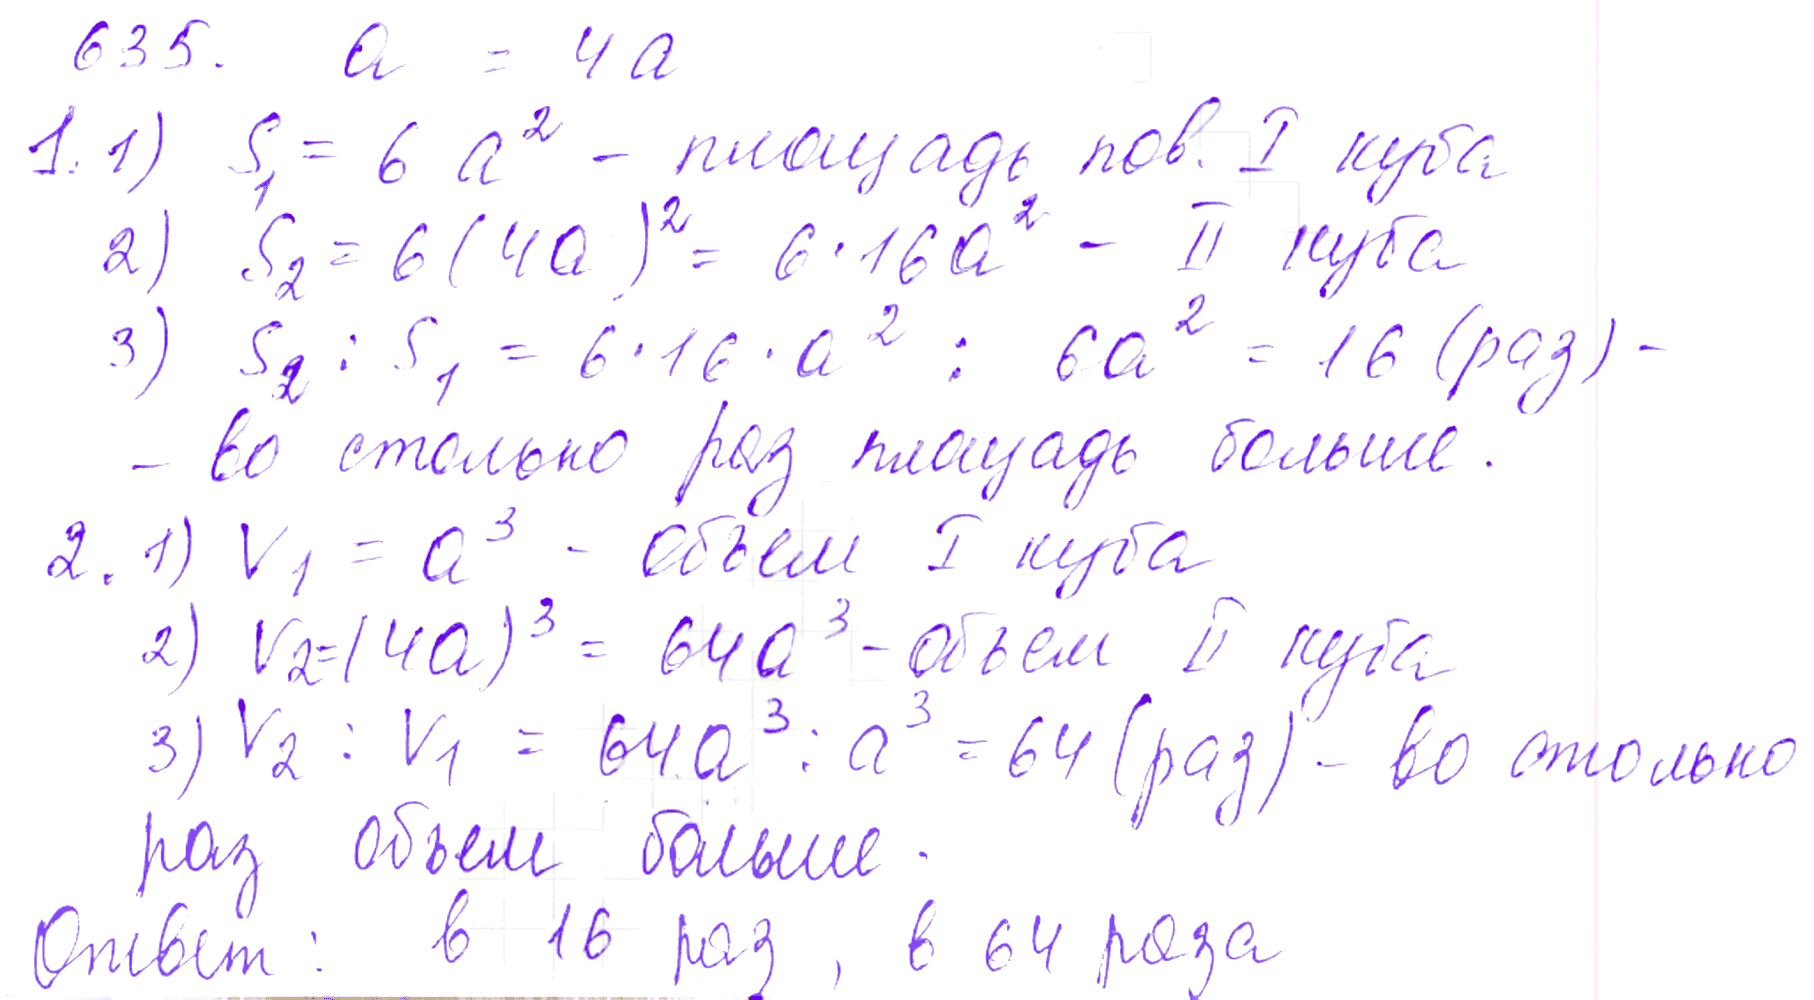 635. a = 4a
1. 1) S₁ = 6 a² – площадь пов. I куба
2) S₂ = 6(4a)² = 6·16a² – II куба
3) S₂ : S₁ = 6·16·a² : 6a² = 16 (раз) –
– во столько раз площадь больше.
2. 1) V₁ = a³ – объем I куба
2) V₂=(4a)³ = 64a³ – объем II куба
3) V₂ : V₁ = 64a³ : a³ = 64 (раз) – во столько
раз объем больше.
Ответ: в 16 раз, в 64 раза